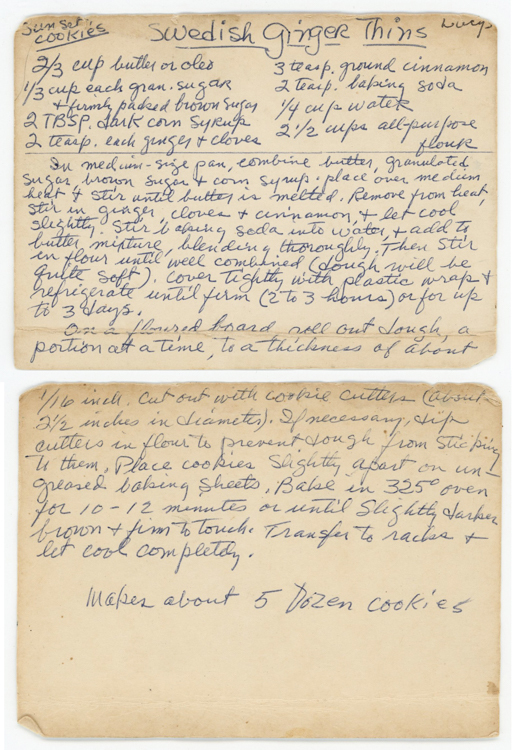 Sunset
cookies
Swedish Ginger Thins
Lucy's
2/3 cup butter or oleo
1/3 cup each gran. sugar
& firmly packed brown sugar
2 TBSP. dark corn syrup
2 teasp. each ginger & cloves
3 teasp. ground cinnamon
2 teasp. baking soda
1/4 cup water
2 1/2 cups all-purpose
flour
In medium-size pan, combine butter, granulated
sugar, brown sugar & corn syrup. place over medium
heat & stir until butter is melted. Remove from heat,
stir in ginger, cloves & cinnamon, & let cool
slightly. Stir baking soda into water, & add to
butter mixture, blending thoroughly. Then stir
in flour until well combined (dough will be
quite soft). Cover tightly with plastic wrap &
refrigerate until firm (2 to 3 hours) or for up
to 3 days.
On a floured board roll out dough, a
portion at a time, to a thickness of about
1/16 inch. Cut out with cookie cutters (about
2 1/2 inches in diameter). If necessary, dip
cutters in flour to prevent dough from sticking
to them. Place cookies slightly apart on un-
greased baking sheets. Bake in 325° oven
for 10-12 minutes or until slightly darker
brown & firm to touch. Transfer to racks &
let cool completely.
Makes about 5 Dozen cookies